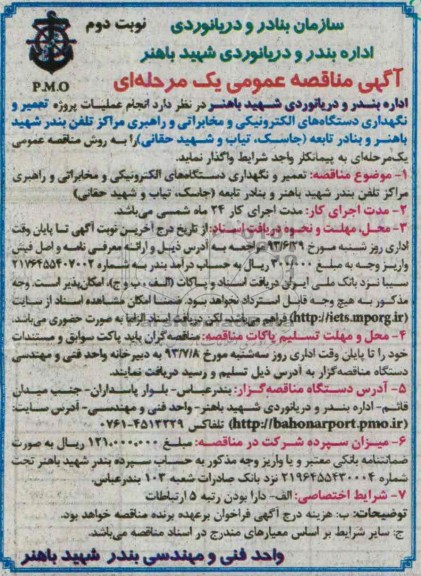 سازمان بنادر و دریانوردی
نوبت دوم
اداره بندر و دریانوردی شهید باهنر
آگهی مناقصه عمومی یک مرحله‌ای
P.M.O
اداره بندر و دریانوردی شهید باهنر در نظر دارد انجام عملیات پروژه تعمیر و
نگهداری دستگاه‌های الکترونیکی و مخابراتی و راهبری مراکز تلفن بندر شهید
باهنر و بنادر تابعه (جاسک، تیاب و شهید حقانی) را به روش مناقصه عمومی
یک‌مرحله‌ای به پیمانکار واجد شرایط واگذار نماید.
۱- موضوع مناقصه: تعمیر و نگهداری دستگاه‌های الکترونیکی و مخابراتی و راهبری
مراکز تلفن بندر شهید باهنر و بنادر تابعه (جاسک، تیاب و شهید حقانی)
۲- مدت اجرای کار: مدت اجرای کار ۲۴ ماه شمسی می‌باشد.
۳- محل، مهلت و نحوه دریافت اسناد: از تاریخ درج آخرین نوبت آگهی تا پایان وقت
اداری روز شنبه مورخ ۹۳/۶/۲۹ مراجعه به آدرس ذیل و ارائه معرفی نامه و اصل فیش
واریز وجه به مبلغ ۳۰۰/۰۰۰ ریال به حساب درآمد بندر به شماره ۲۱۷۶۴۵۵۴۰۷۰۰۲
سیبا نزد بانک ملی ایران دریافت اسناد و پاکات (الف، ب و ج)، امکان‌پذیر است. وجه
مذکور به هیچ وجه قابل استرداد نخواهد بود. ضمنا امکان مشاهده اسناد از سایت
(http://iets.mporg.ir) فراهم می‌باشد. لکن دریافت اسناد الزاما به صورت حضوری می‌باشد.
۴- محل و مهلت تسلیم پاکات مناقصه: مناقصه‌گران باید پاکت سوابق و مستندات
خود را تا پایان وقت اداری روز سه‌شنبه مورخ ۹۳/۷/۸ به دبیرخانه واحد فنی و مهندسی
دستگاه مناقصه‌گزار به آدرس ذیل تسلیم و رسید دریافت نمایند.
۵- آدرس دستگاه مناقصه‌گزار: بندرعباس- بلوار پاسداران- جنب میدان
قائم- اداره بندر و دریانوردی شهید باهنر- واحد فنی و مهندسی- آدرس سایت:
(http://bahonarport.pmo.ir) تلفاکس ۴۵۱۳۳۲۹-۰۷۶۱
۶- میزان سپرده شرکت در مناقصه: مبلغ ۱۲۱،۰۰۰،۰۰۰ ریال به صورت
ضمانتنامه بانکی معتبر و یا واریز وجه مذکور به حساب سپرده بندر شهید باهنر تحت
شماره ۲۱۹۶۴۵۵۴۳۰۰۰۴ نزد بانک صادرات شعبه ۱۰۳ بندرعباس.
۷- شرایط اختصاصی: الف- دارا بودن رتبه ۵ ارتباطات
توضیحات: ب: هزینه درج آگهی فراخوان برعهده برنده مناقصه خواهد بود.
ج: سایر شرایط بر اساس معیارهای مندرج در اسناد مناقصه می‌باشد.
واحد فنی و مهندسی بندر شهید باهنر